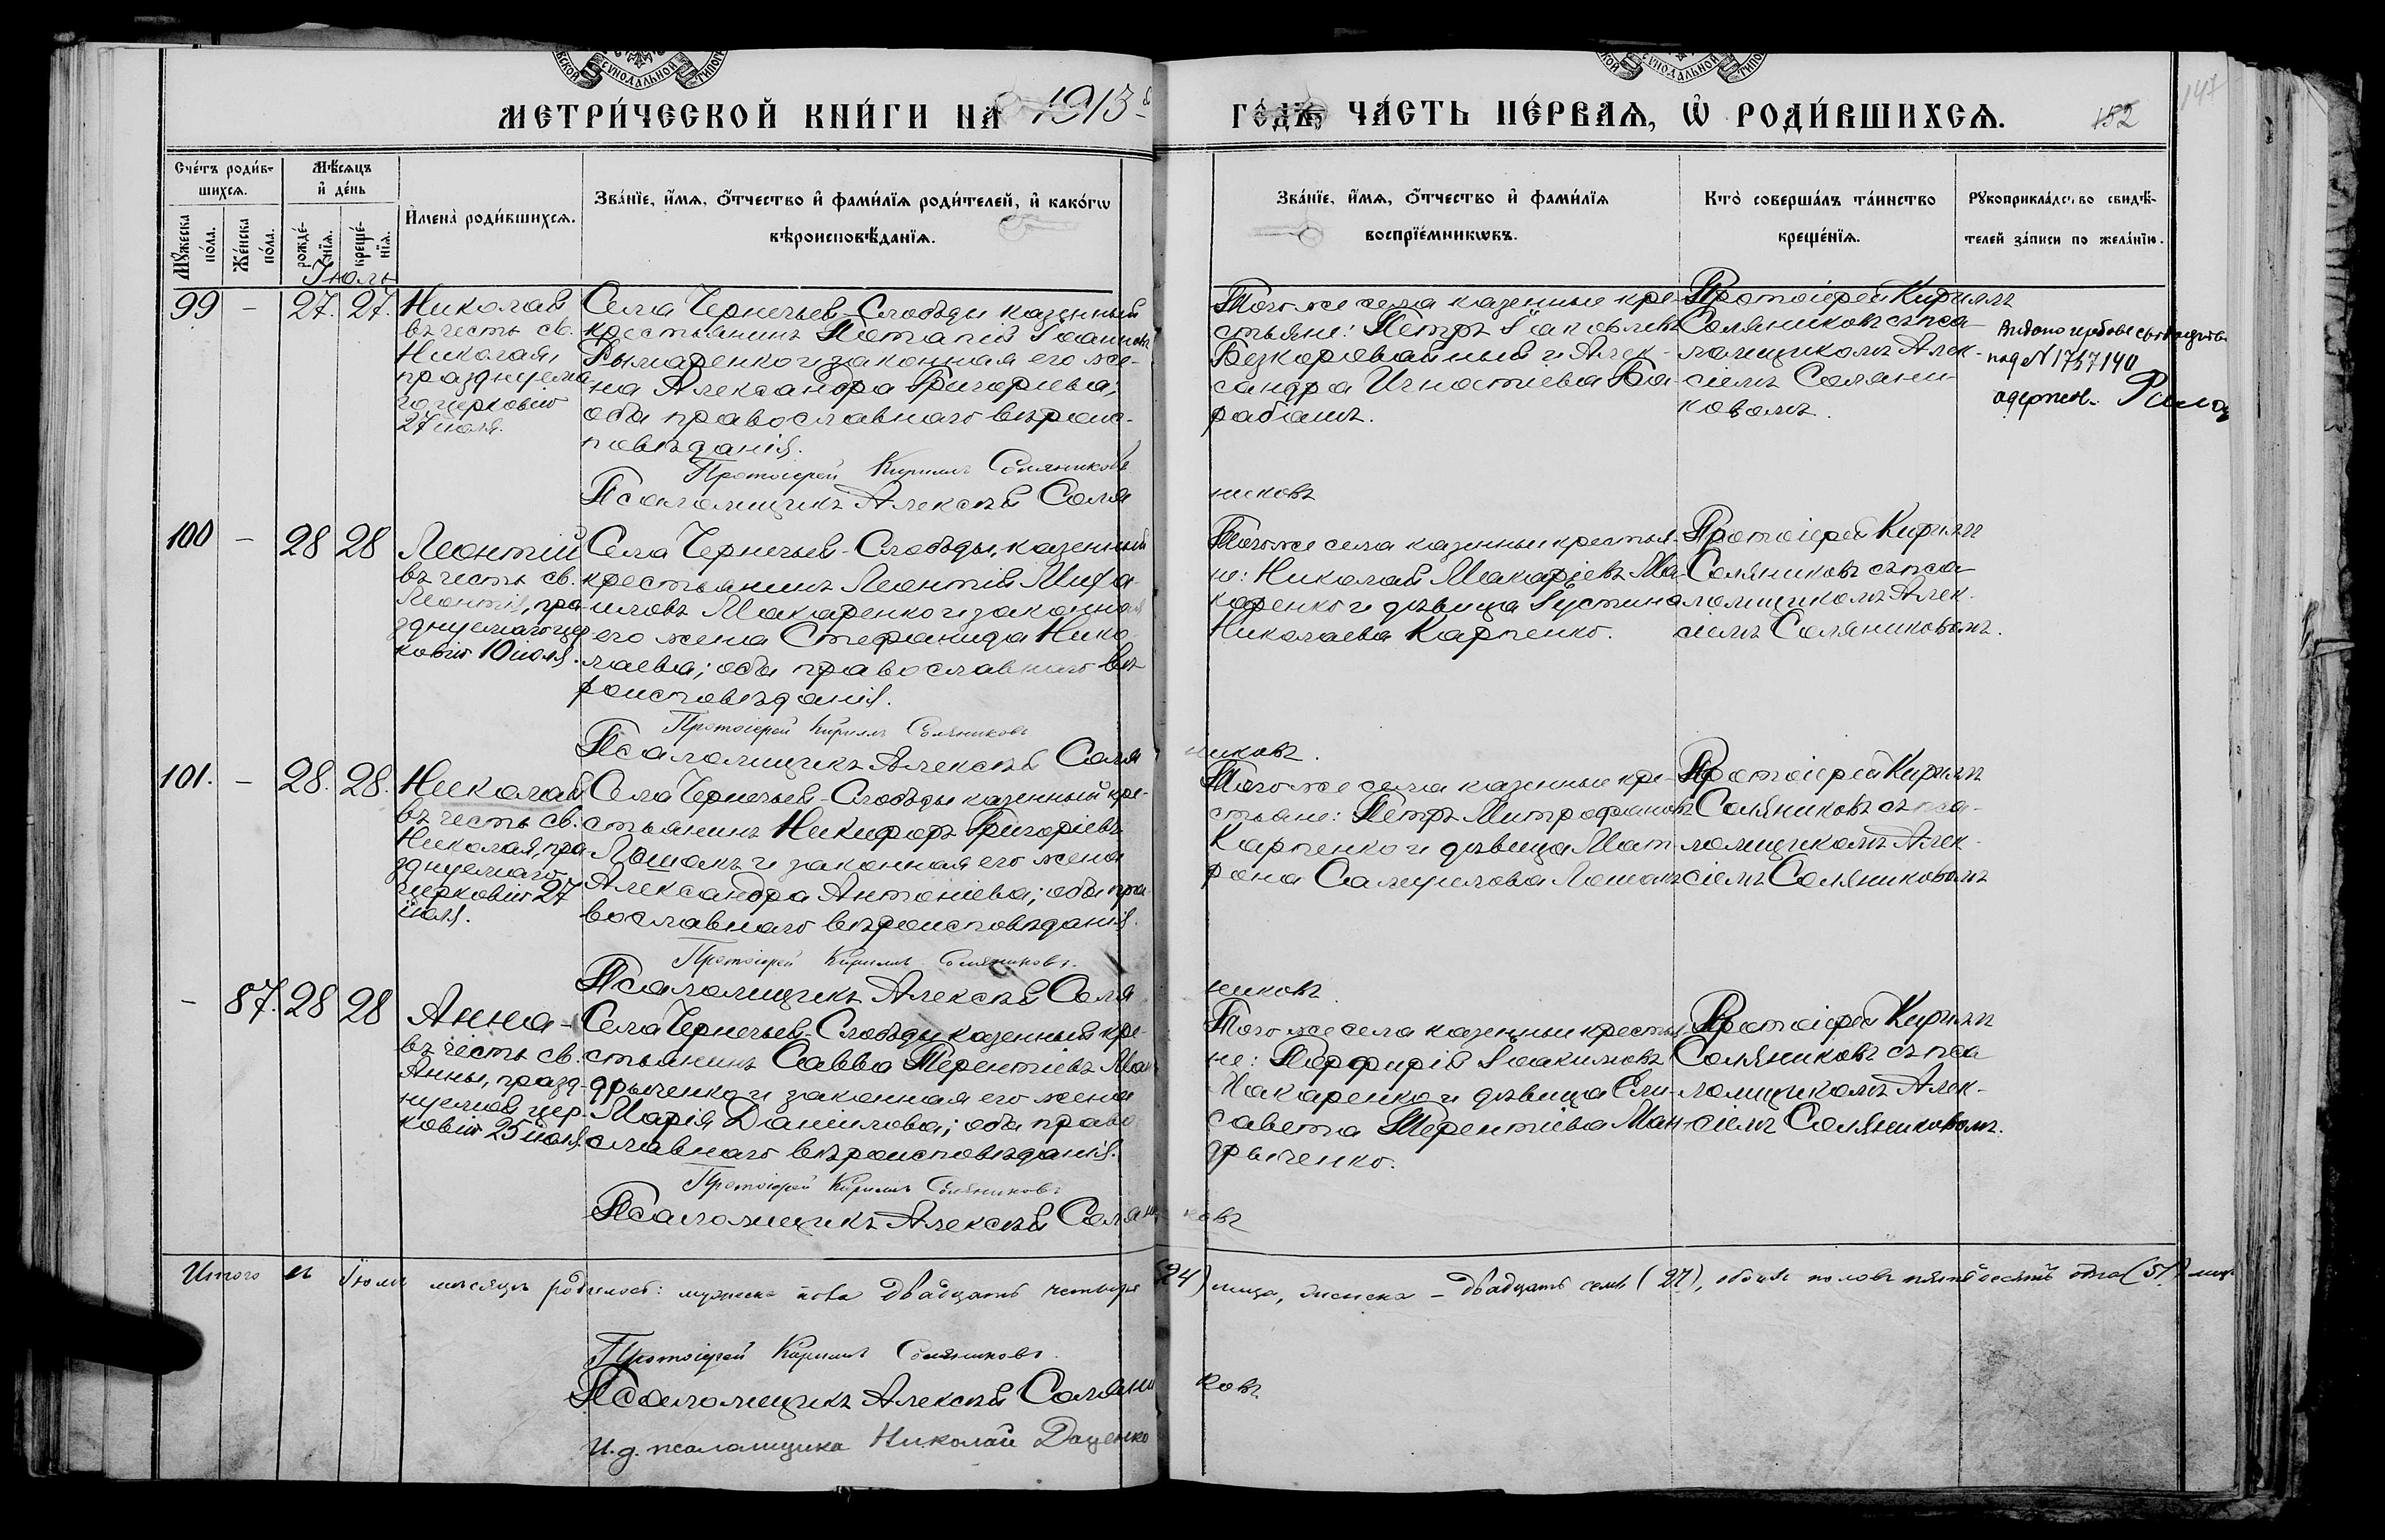 СѴНОДАЛЬНОЙ
СѴНОДАЛЬНОЙ
МЕТРИ́ЧЕСКОЙ КНИ́ГИ НА 1913
ГО́ДЪ ЧА́СТЬ ПЕ́РВАѦ, Ѡ҆ РОДИ́ВШИХСѦ.
152
147
Сче́тъ роди́в-
шихсѧ.
Мѣ́сѧцъ
и҆ де́нь
Мꙋ́жеска
по́ла.
Же́нска
по́ла.
рожде́-
нїѧ.
креще́-
нїѧ.
И҆мена̀ роди́вшихсѧ.
Зва́нїе, и҆́мѧ, ѻ҆́тчество и҆ фами́лїѧ роди́телей, и҆ како́гѡ
вѣроисповѣ́данїѧ.
Зва́нїе, и҆́мѧ, ѻ҆́тчество и҆ фами́лїѧ
воспрїе́мникѡвъ.
Кто̀ соверша́лъ та́инство
креще́нїѧ.
Рꙋкоприкла́дство свидѣ́-
телей за́писи по жела́нїю.
Іюль
99 - 27. 27. Николай
въ честь св.
Николая,
празднуема
го церковію
27 іюля.
Села Чернечьей-Слободы казенный
крестьянинъ Потапій Іоанновъ
Рымаренко и законная его же-
на Александра Григоріева;
оба православнаго вѣроис-
повѣданія.
Протоіерей Кириллъ Соляниковъ
Псаломщикъ Алексѣй Соля
никовъ
Того же села казенные кре-
стьяне: Петръ Іаковлевъ
Безкоровайный и Алек-
сандра Игнатіева Ба-
рабашъ.
Протоіерей Кириллъ
Соляниковъ съ пса-
ломщикомъ Алек-
сіемъ Соляни-
ковомъ.
под N 1757140
одержав.
100 - 28 28 Леонтій
въ честь св.
Леонтія, пра-
зднуемаго цер
ковію 10 іюля.
Села Чернечьей-Слободы, казенный
крестьянинъ Леонтій Миха-
иловъ Макаренко и законная
его жена Стефанида Нико-
лаева; оба православнаго вѣ-
роисповѣданія.
Протоіерей Кириллъ Соляниковъ
Псаломщикъ Алексѣй Соля
никовъ.
Того же села казенные крестья-
не: Николай Макаріевъ Ма-
каренко и дѣвица Іустина
Николаева Карпенко.
Протоіерей Кириллъ
Соляниковъ съ пса-
ломщикомъ Алек-
сіемъ Соляниковомъ.
101. - 28. 28. Николай
въ честь св.
Николая, пра-
зднуемаго
церковію 27
іюля.
Села Чернечьей-Слободы казенный кре-
стьянинъ Никифоръ Григоріевъ
Лошакъ и законная его жена
Александра Антоніева; оба пра-
вославнаго вѣроисповѣданія.
Протоіерей Кириллъ Соляниковъ.
Псаломщикъ Алексѣй Соля
никовъ
Того же села казенные кре-
стьяне: Петръ Митрофановъ
Карпенко и дѣвица Мат-
рона Самуилова Лошакъ
Протоіерей Кириллъ
Соляниковъ съ пса-
ломщикомъ Алек-
сіемъ Соляниковомъ
- 87. 28 28 Анна-
въ честь св.
Анны, празд-
нуемой цер-
ковію 25 іюля.
Села Чернечьей-Слободы казенный кре-
стьянинъ Савва Терентіевъ Ман-
дрыченко и законная его жена
Марія Даніилова; оба право-
славнаго вѣроисповѣданія.
Протоіерей Кириллъ Соляниковъ
Псаломщикъ Алексѣй Соляни
ковъ
Того же села казенные крестья-
не: Порфирій Іоакимовъ
Макаренко и дѣвица Ели-
савета Терентіева Ман-
дрыченко.
Протоіерей Кириллъ
Соляниковъ съ пса
ломщикомъ Алек-
сіемъ Соляниковомъ.
Итого въ Іюлѣ мѣсяцѣ родилось: мужеска пола двадцать четыре (24) лица, женска - двадцать семь (27), обоихъ половъ пятьдесятъ одно (51) лицо
Протоіерей Кириллъ Соляниковъ.
Псаломщикъ Алексѣй Соляни
ковъ
И.д. псаломщика Николай Даценко